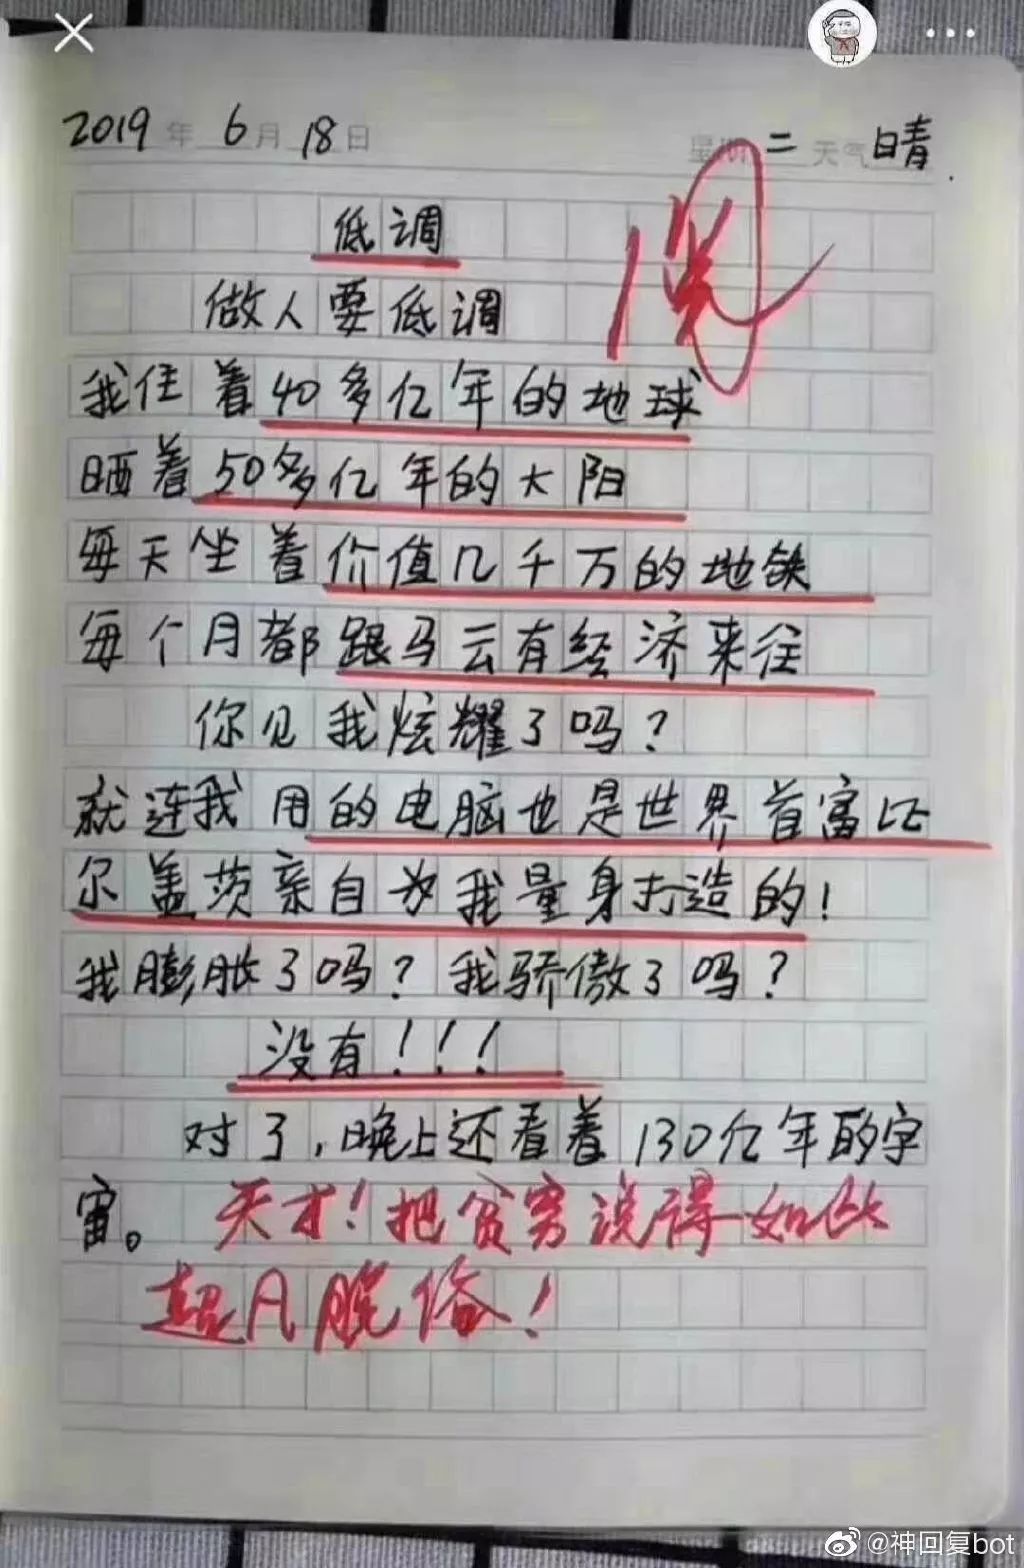 2019年6月18日 星期二 天气晴.
阅
低调
做人要低调
我住着40多亿年的地球
晒着50多亿年的大阳
每天坐着价值几千万的地铁
每个月都跟马云有经济来往
你见我炫耀了吗?
就连我用的电脑也是世界首富比
尔盖茨亲自为我量身打造的!
我膨胀了吗? 我骄傲了吗?
没有!!!
对了,晚上还看着130亿年的宇
宙。 天才!把贫穷说得如此
超凡脱俗!
@神回复bot